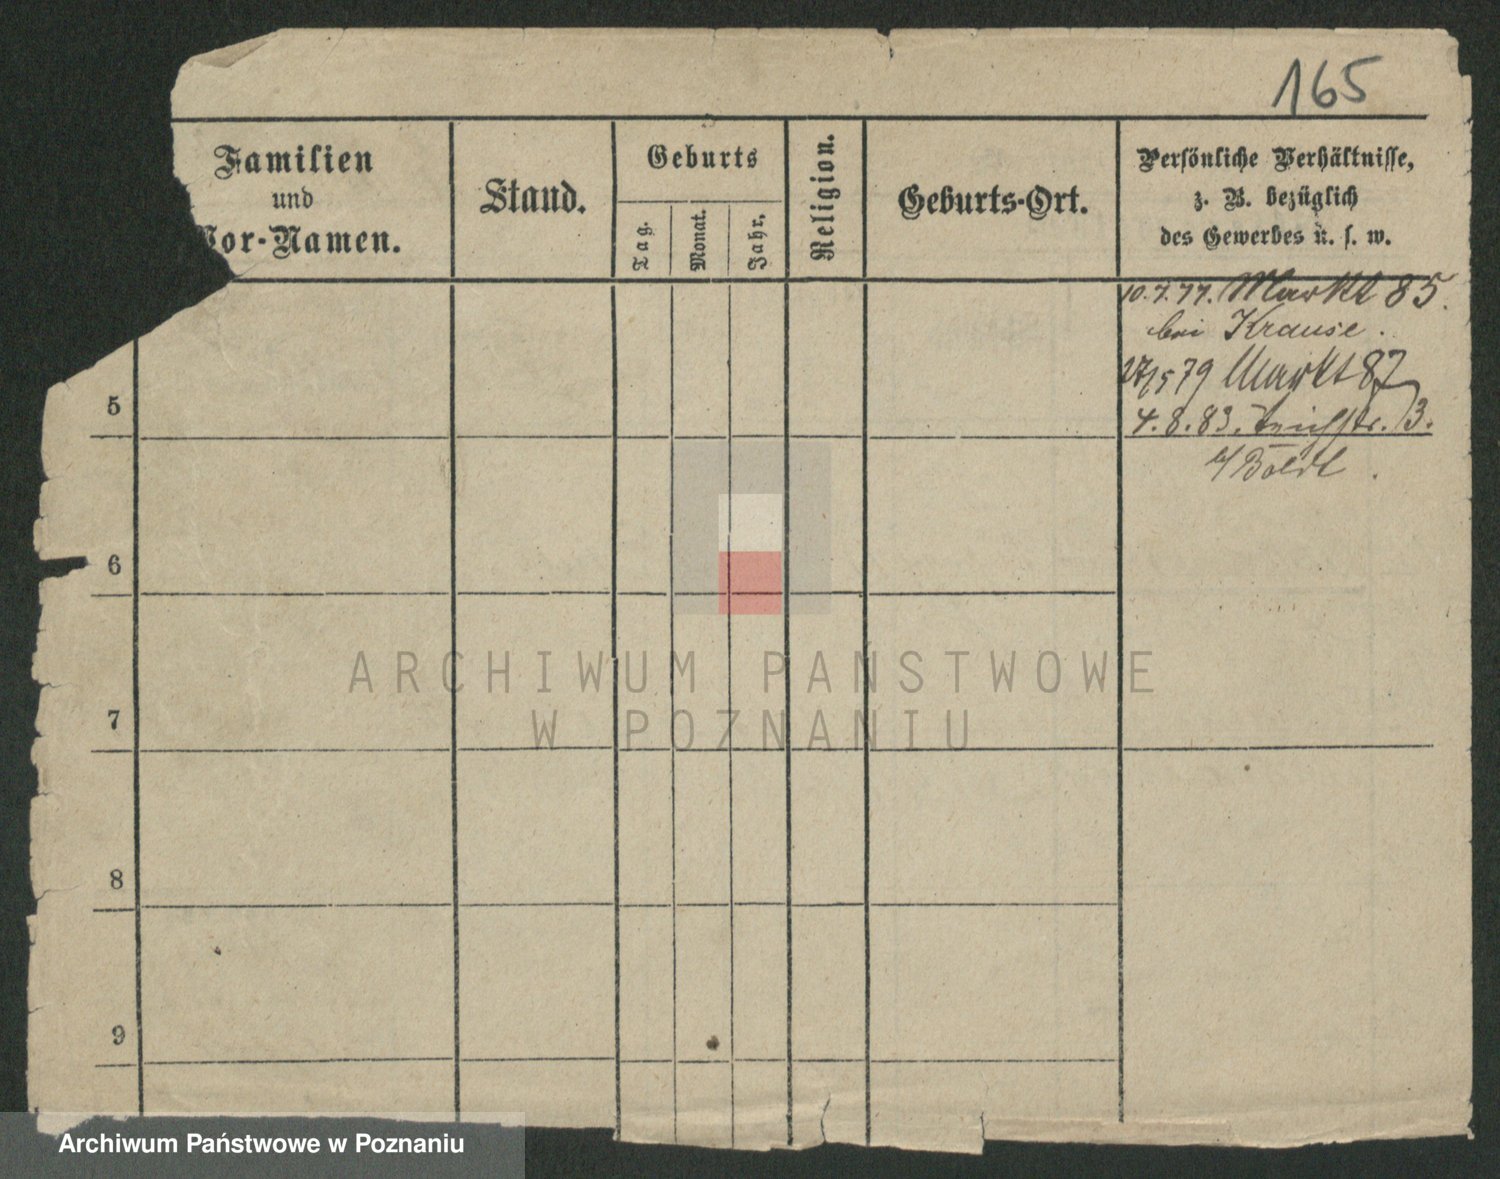 165
Familien
und
Vor-Namen.
Stand.
Geburts
Tag.
Monat.
Jahr.
Religion.
Geburts-Ort.
Persönliche Verhältnisse,
z. B. bezüglich
des Gewerbes u. s. w.
10.7.77. Markt 85.
bei Krause.
27/5 79 Markt 87
4.8.83. Teichstr. 3.
b/ Boldt.
5
6
7
8
9
ARCHIWUM PAŃSTWOWE
W POZNANIU
Archiwum Państwowe w Poznaniu